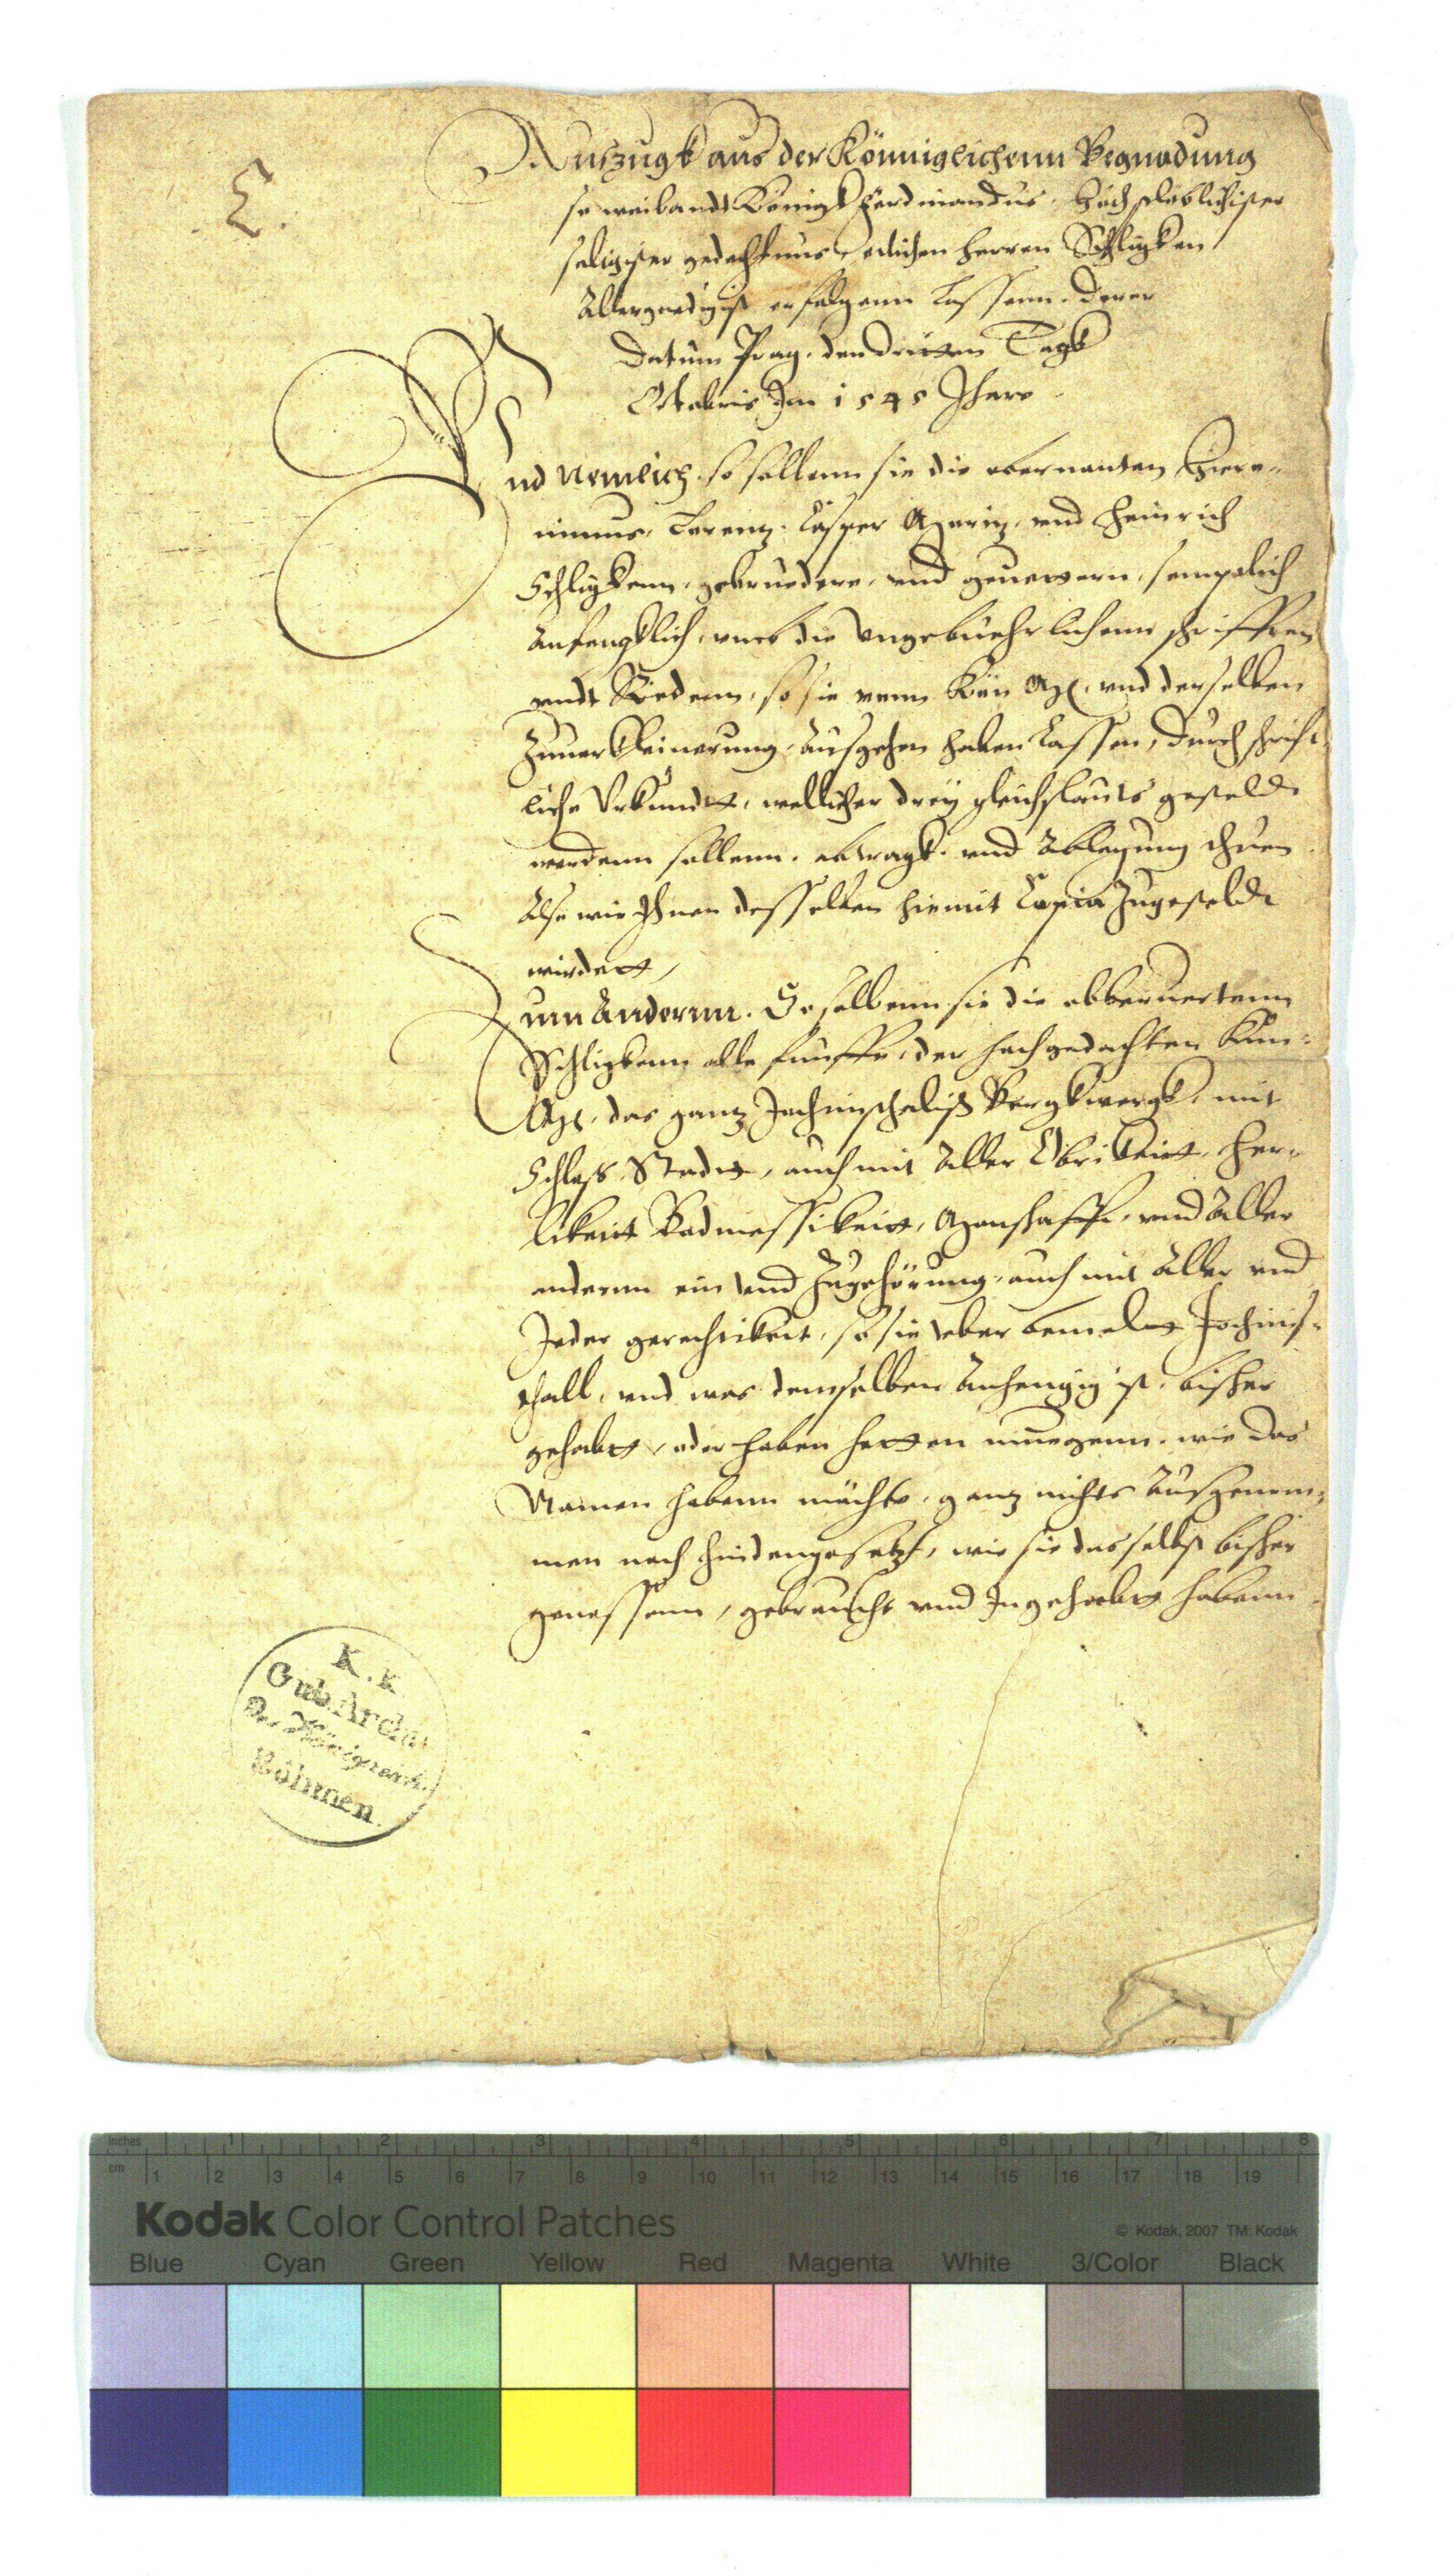 L.
Auszugk aus der Könniglichenn Begnadung
so weilandt Königk Ferdinandus, Hochstloblichister
seligister gedechtnus, etlichen Herren Schligken
Allergnedigist erfolgenn Lassenn. Derer
Datum Prag. den dritten Tagk
Octobris Im 1545 Jhare
Vnd Nemlich. so sollenn sie die obernanten Hiero-
nimus, Lorenz. Casper Moritz und Heinrich
Schligkenn, gebruedere, und geuettern, semptlich
Anfengklich, umb die ungebuehrlichenn schrifften
undt Redenn, so sie uenn Kün Mt. und derselben
Zuuerkleinerung, Ausgehen haben Lassen, durch schrifft
liche Urkundtt, wellicher drey gleichslauts gesteldt
werdenn sollenn. abtragk. und Ablegung thuen
Also wie Ihnen desselben hiemit Copia Zugesteldt
wirdett,
Zum Andernn. So sollenn sie die obberuertenn
Schligkenn alle funffe, der hochgedachten Kün:
Mt. das gantz Jochimsthalisch Bergkwergk, mit
Schloss, Stadtt, auch mit Aller Obrikeitt, Her-
likeitt Botmessikeitt, Manschafft, und Aller
anderen ein und Zugehörung, auch mit Aller und
Jeder gerechtikeit, so sie ueber bemeltt Jochims-
thall, und was demselben Anhengig ist, bisher
gehabtt, oder haben hetten muegenn. wie das
Namen habenn möchte, gantz nichts Ausgenom-
men noch hindengesetzt, wie sie dasselbst bisher
genossenn, gebraucht und Ingehabtt habenn
K. k
Gub. Archiv
Des Königreichs
Böhmen.
inches 1 2 3 4 5 6 7 8
cm 1 2 3 4 5 6 7 8 9 10 11 12 13 14 15 16 17 18 19
Kodak Color Control Patches © Kodak, 2007 TM: Kodak
Blue Cyan Green Yellow Red Magenta White 3/Color Black